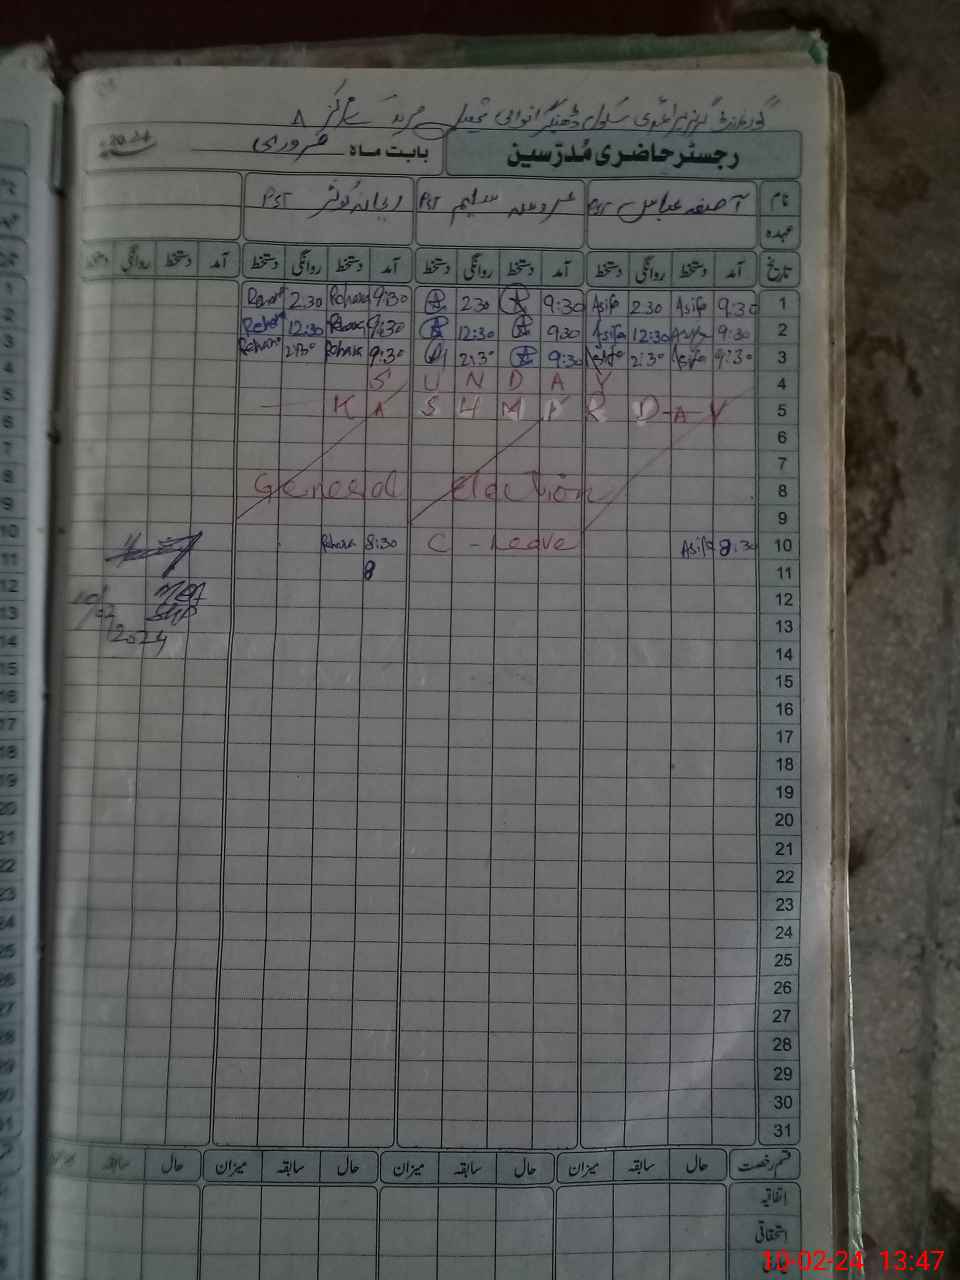 گورنمنٹ گرلز پرائمری سکول ڈھینگرانوالی تحصیل مرید مرکز ۸
رجسٹر حاضری مُدرّسین بابت ماہ فروری 2024
نام آصفہ عباس PST عروسہ سلیم PST ریحانہ کوثر PST
عہدہ
تاریخ آمد دستخط روانگی دستخط آمد دستخط روانگی دستخط آمد دستخط روانگی دستخط آمد دستخط روانگی دستخط
1 9:30 Asifa 2:30 Asifa 9:30 2:30 9:30 Rehana 2:30 Rehana
2 9:30 Asifa 12:30 Asifa 9:30 12:30 9:30 Rehana 12:30 Rehana
3 9:30 Asifa 2:30 Asifa 9:30 2:30 9:30 Rehana 2:30 Rehana
4 SUNDAY
5 KASHMIR DAY
6
7
8 General election
9
10 8:30 Asifa C-Leave 8:30 Rehana
11 8
12
13
14 2024
15
16
17
18
19
20
21
22
23
24
25
26
27
28
29
30
31
قسم رخصت حال سابقہ میزان حال سابقہ میزان حال سابقہ میزان حال سابقہ
اتفاقیہ
استحقاقی
10-02-24 13:47